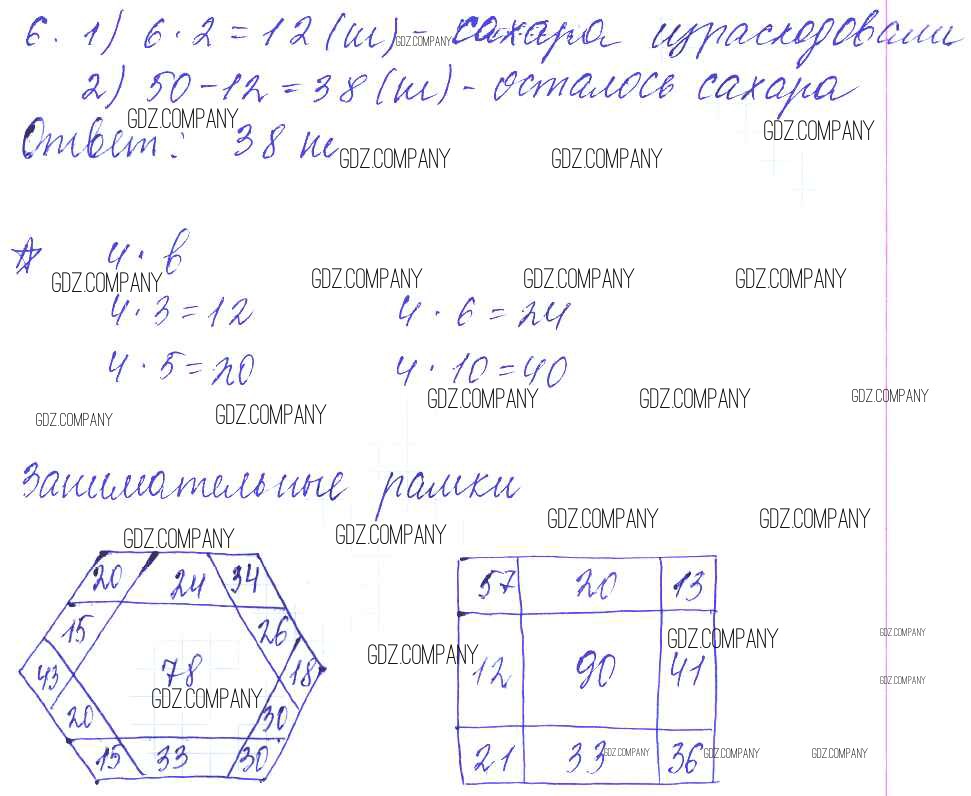 6. 1) 6 · 2 = 12 (ш) - сахара израсходовали
GDZ.COMPANY
2) 50 - 12 = 38 (ш) - осталось сахара
GDZ.COMPANY GDZ.COMPANY
Ответ: 38 ш
GDZ.COMPANY GDZ.COMPANY
☆ 4 · в
GDZ.COMPANY GDZ.COMPANY GDZ.COMPANY GDZ.COMPANY
4 · 3 = 12 4 · 6 = 24
4 · 5 = 20 4 · 10 = 40
GDZ.COMPANY GDZ.COMPANY GDZ.COMPANY GDZ.COMPANY GDZ.COMPANY
Занимательные рамки
GDZ.COMPANY GDZ.COMPANY GDZ.COMPANY GDZ.COMPANY
20 24 34 57 20 13
15 26
GDZ.COMPANY GDZ.COMPANY GDZ.COMPANY
43 78 18 12 90 41
GDZ.COMPANY GDZ.COMPANY
20 30
15 33 30 21 33 36
GDZ.COMPANY GDZ.COMPANY GDZ.COMPANY